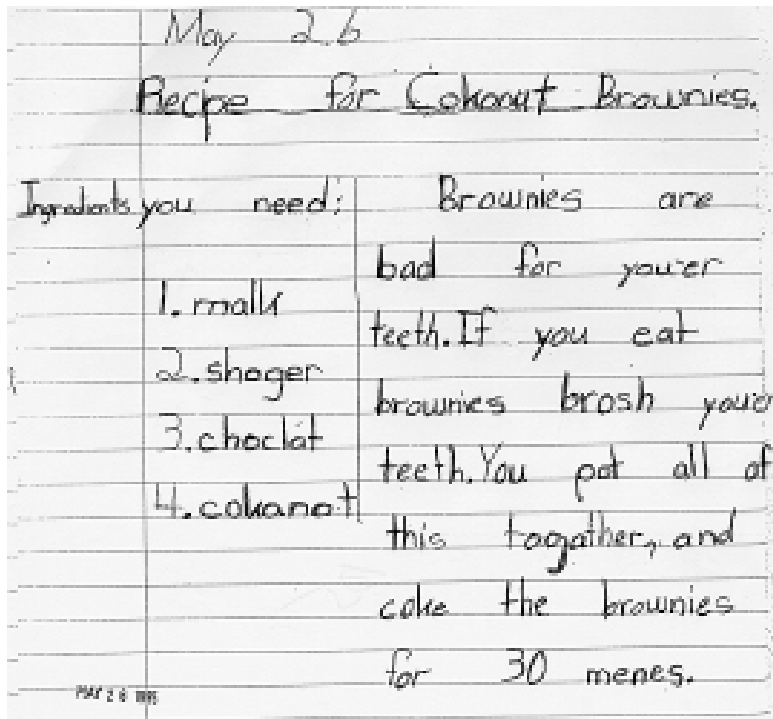 May 26
Recipe for Cokonut Brownies.
Ingredients you need:
1. malk
2. shoger
3. choclat
4. cokanot
Brownies are
bad for youer
teeth. If you eat
brownies brosh youer
teeth. You pot all of
this togather, and
coke the brownies
for 30 menes.
MAY 26 1995